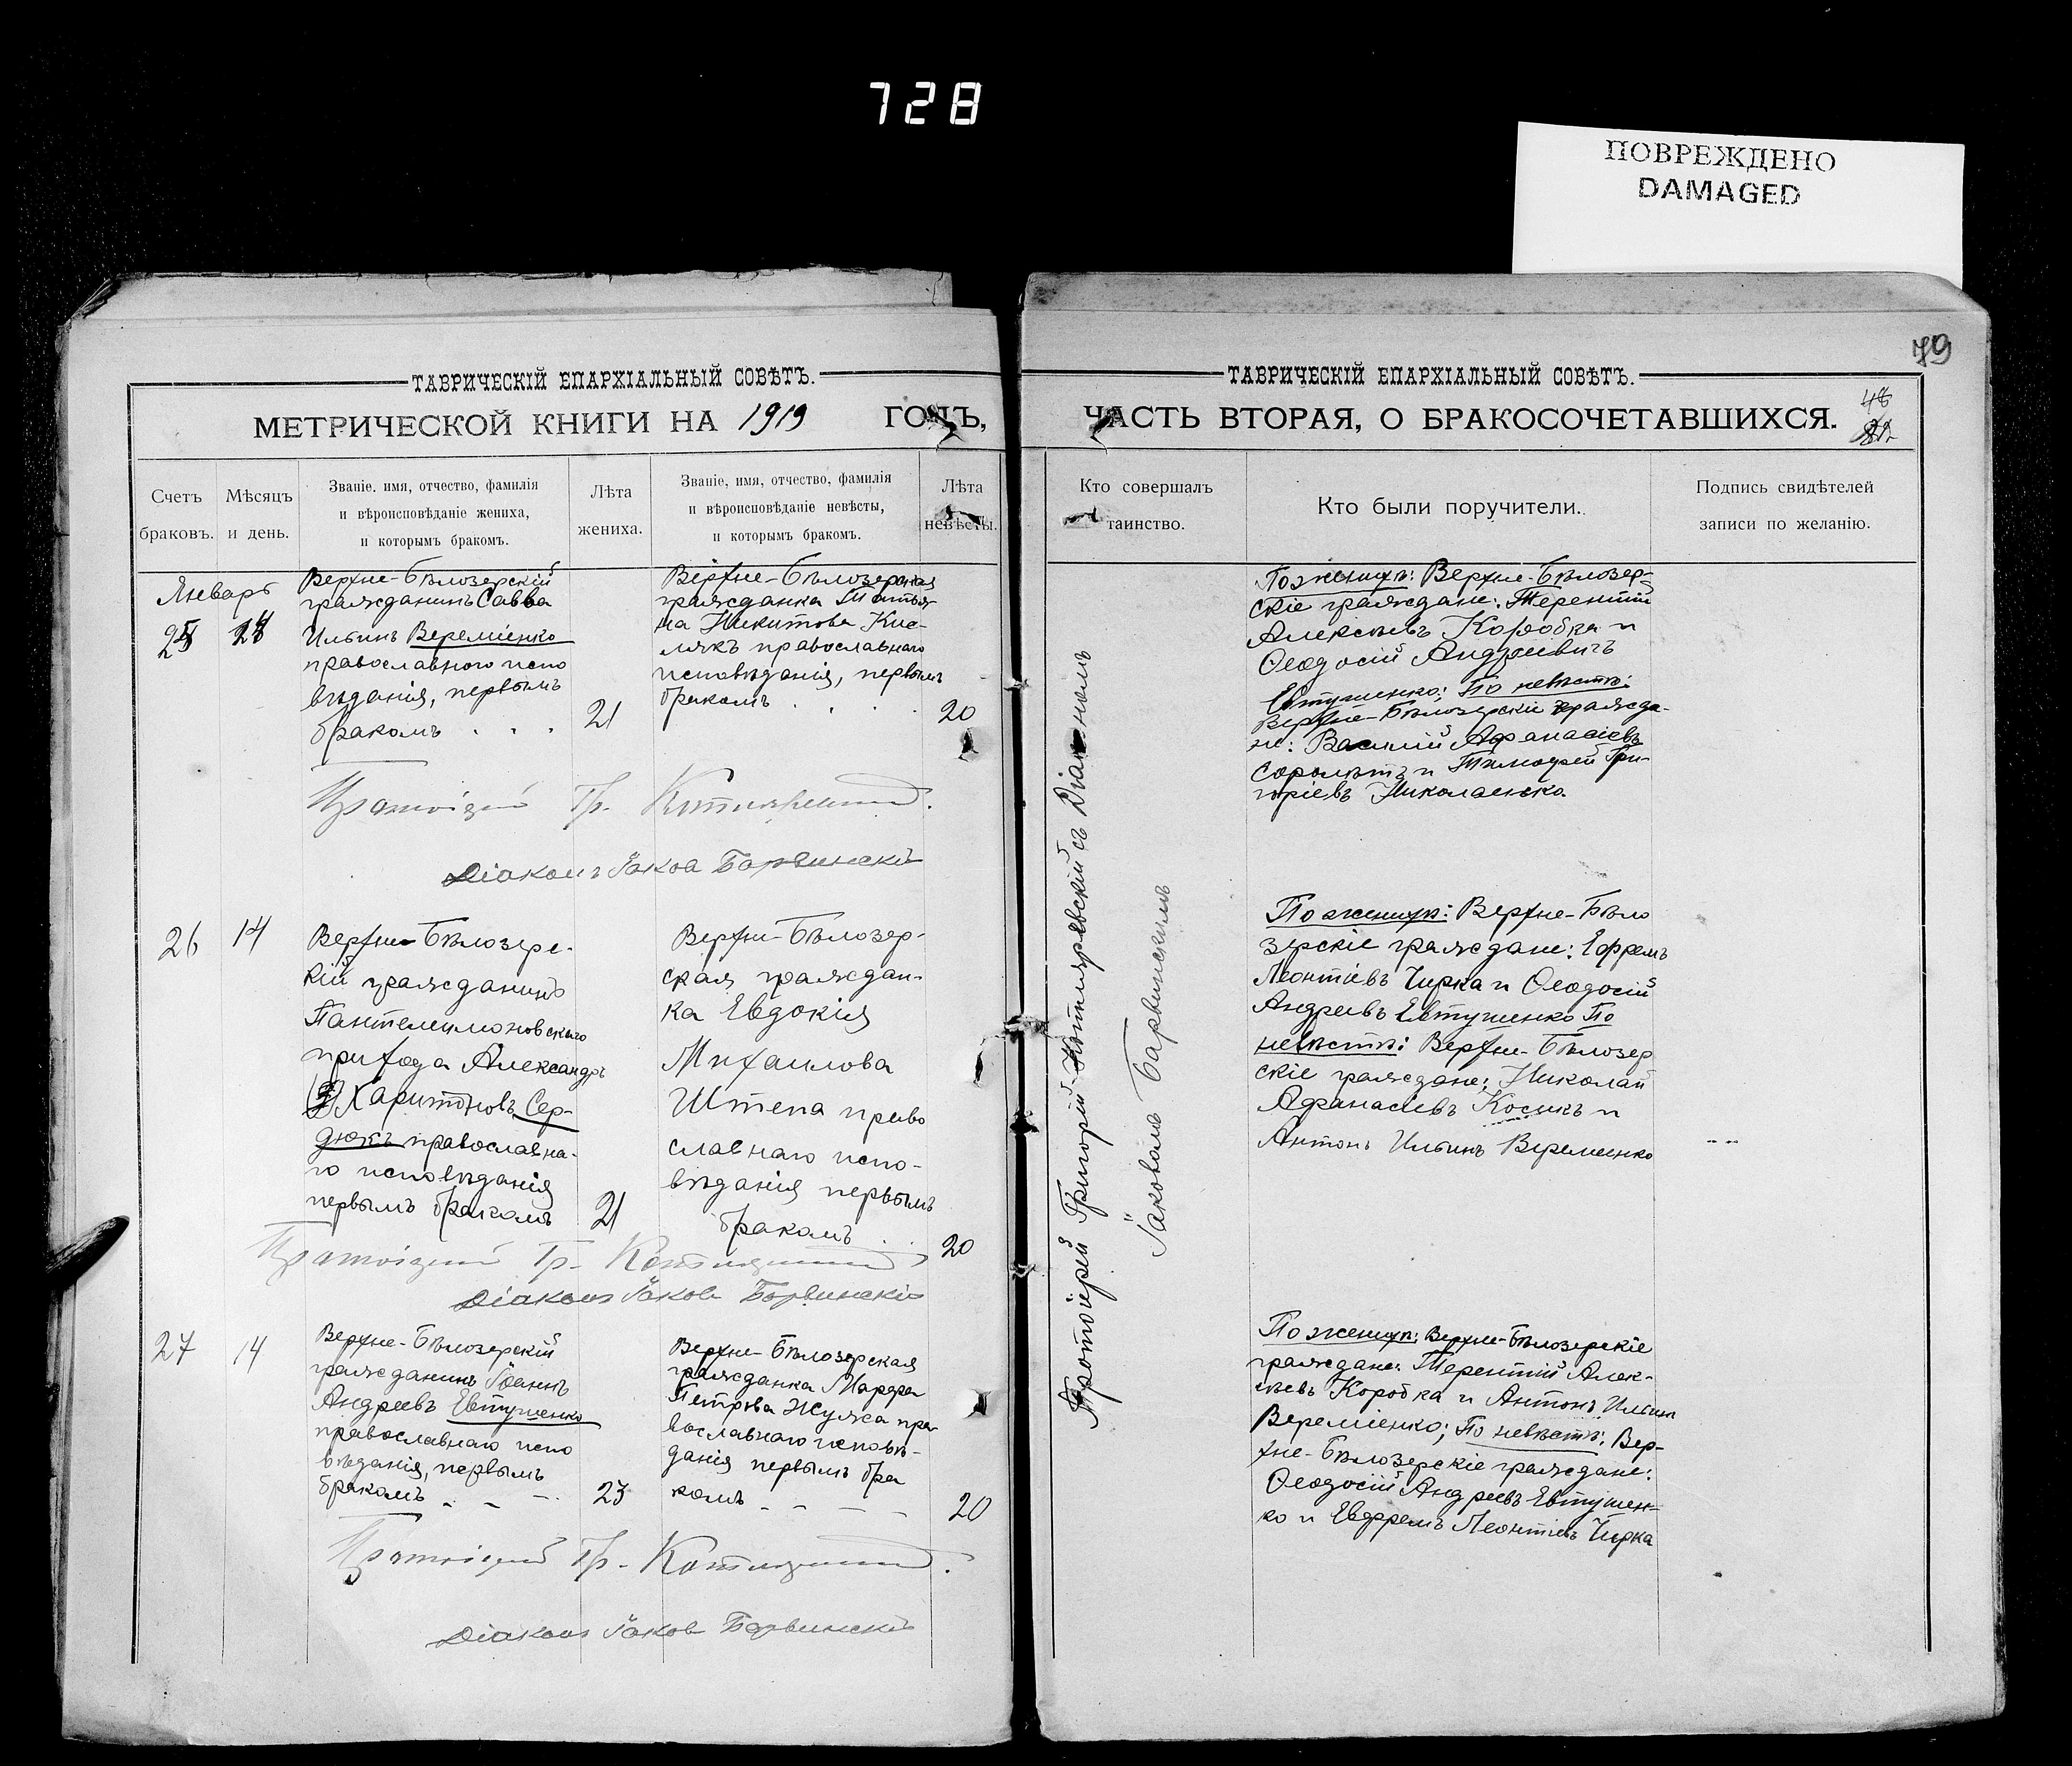 728
ПОВРЕЖДЕНО
DAMAGED
79
ТАВРИЧЕСКІЙ ЕПАРХІАЛЬНЫЙ СОВѢТЪ.
МЕТРИЧЕСКОЙ КНИГИ НА 1919 ГОДЪ,
Счетъ браковъ.
Мѣсяцъ и день.
Званіе, имя, отчество, фамилія
и вѣроисповѣданіе жениха,
и которымъ бракомъ.
Лѣта
жениха.
Званіе, имя, отчество, фамилія
и вѣроисповѣданіе невѣсты,
и которымъ бракомъ.
Лѣта
невѣсты.
Январь
25
Верхне-Бѣлозерскій
гражданинъ Савва
Ильинъ Веремiенко
православного испо
вѣданія, первымъ
бракомъ . . .
21
Верхне-Бѣлозерская
гражданка Татья
на Никитова Кис-
лякъ православнаго
исповѣданія, первымъ
бракомъ . . .
20
Протоіерей Гр. Котляревскій.
Діаконъ Іаковъ Барвинскій
26
14
Верхне-Бѣлозерс-
кій гражданинъ
Пантелеимоновскаго
прихода Александръ
Харитоновъ Сер-
дюкъ православна-
го исповѣданія
первымъ бракомъ
21
Верхне-Бѣлозер-
ская граждан-
ка Евдокія
Михаилова
Штепа право
славнаго испо-
вѣданія первымъ
бракомъ . .
20
Протоіерей Гр. Котляревскій
Діаконъ Іаковъ Барвинскій
27
14
Верхне-Бѣлозерскій
гражданинъ Іоаннъ
Андреевъ Евтушенко
православнаго испо
вѣданія, первымъ
бракомъ - - -
23
Верхне-Бѣлозерская
гражданка Марфа
Петрова Жужа пра
вославнаго исповѣ-
данія первымъ бра
комъ - - -
20
Протоіерей Гр. Котляревскій.
Діаконъ Іаковъ Барвинскій
ТАВРИЧЕСКІЙ ЕПАРХІАЛЬНЫЙ СОВѢТЪ.
ЧАСТЬ ВТОРАЯ, О БРАКОСОЧЕТАВШИХСЯ.
Кто совершалъ
таинство.
Кто были поручители.
Подпись свидѣтелей
записи по желанію.
Протоіерей Григорій Котляревскій съ Діакономъ
Іаковомъ Барвинскимъ
По женихѣ: Верхне-Бѣлозер-
скіе граждане: Терентій
Алексѣевъ Коробка и
Ѳеодосій Андреевичъ
Евтушенко; По невѣстѣ:
Верхне-Бѣлозерскіе гражда-
не: Василій Афанасіевъ
и Тимофей Гри-
горіевъ Николаенко.
По женихѣ: Верхне-Бѣло
зерскіе граждане: Ефремъ
Леонтіевъ Чирка и Ѳеодосій
Андреевъ Евтушенко По
невѣстѣ: Верхне-Бѣлозер
скіе граждане: Николай
Афанасіевъ Косикъ и
Антонъ Ильинъ Веремеенко
По женихѣ: Верхне-Бѣлозерскіе
граждане: Терентій Алек-
сѣевъ Коробка и Антонъ Ильинъ
Веремiенко; По невѣстѣ: Вер-
хне-Бѣлозерскіе граждане:
Ѳеодосій Андреевъ Евтушен-
ко и Евфремъ Леонтіевъ Чирка